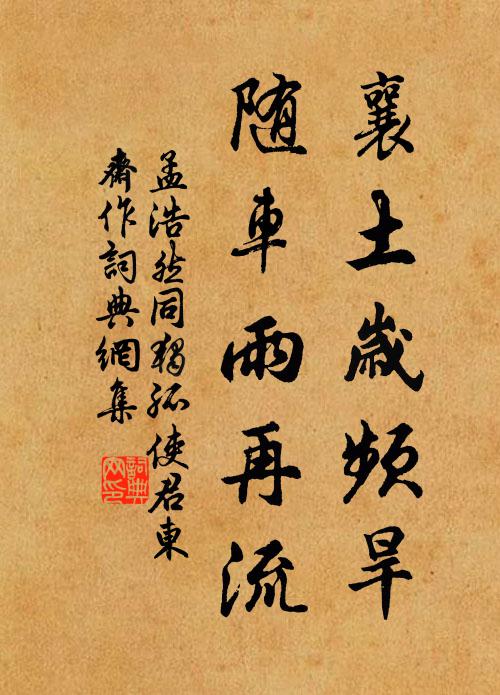 襄土歲頻旱
隨車雨再流
孟浩然同獨孤使君東
齋作詞典網集
詞典
网印